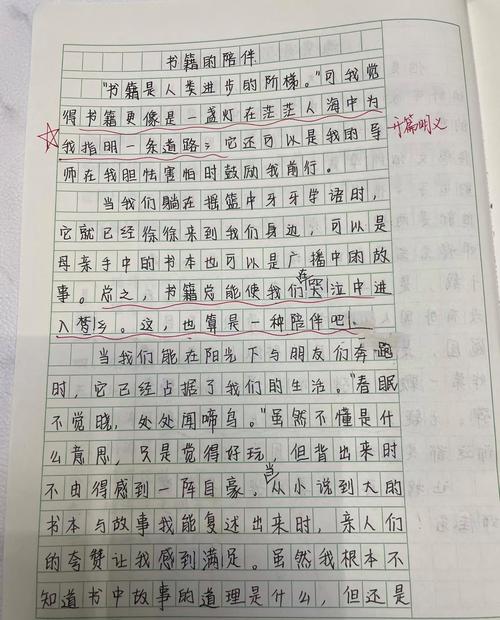 书籍的陪伴
"书籍是人类进步的阶梯。"可我觉
得书籍更像是一盏灯在茫茫人海中为
我指明一条道路；它还可以是我的导 开篇明义
师在我胆怯害怕时鼓励我前行。
当我们躺在摇篮中牙牙学语时，
它就已经徐徐来到我们身边，可以是
母亲手中的书本也可以是广播中的故
事。总之，书籍总能使我们在哭泣中进
入梦乡。这，也算是一种陪伴吧。
当我们能在阳光下与朋友们奔跑
时，它已经占据了我们的生活。"春眠
不觉晓，处处闻啼鸟。"虽然不懂是什
么意思，只是觉得好玩，但背出来时
不由得感到一阵自豪。当从小说到大的
书本与故事我能复述出来时，亲人们
的夸赞让我感到满足。虽然我根本不
知道书中故事的道理是什么，但还是